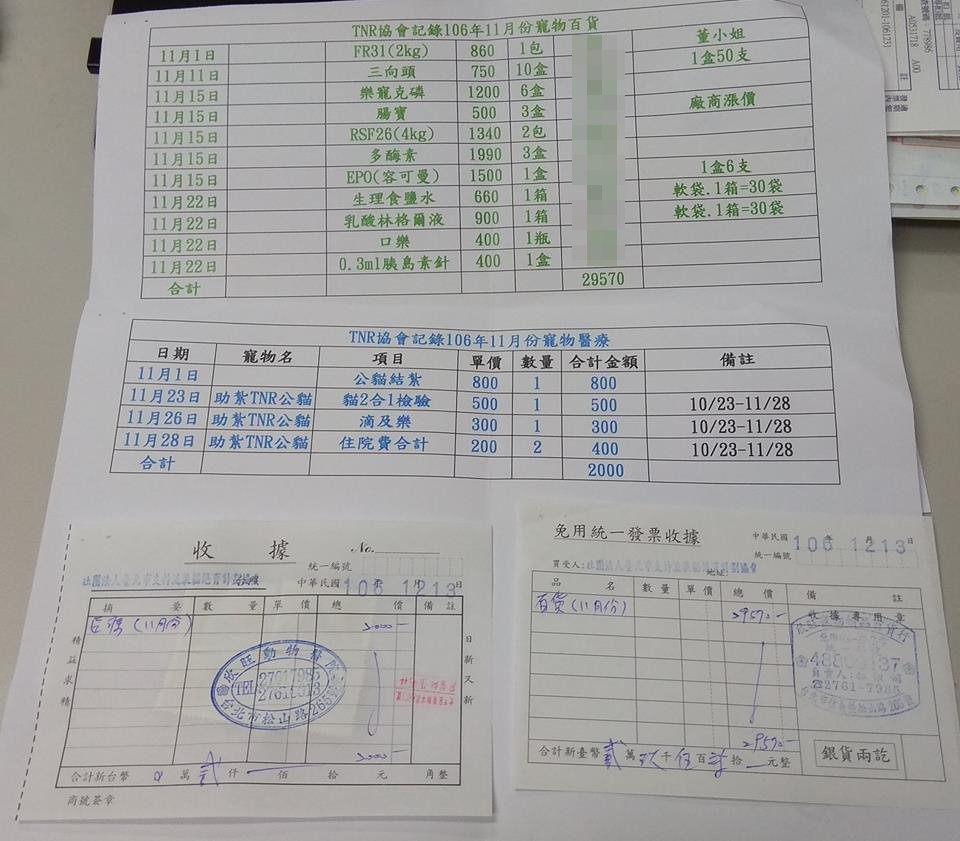 TNR協會記錄106年11月份寵物百貨
11月1日 FR31(2kg) 860 1包 董小姐
11月11日 三向頭 750 10盒 1盒50支
11月15日 樂寵克磷 1200 6盒
11月15日 腸寶 500 3盒 廠商漲價
11月15日 RSF26(4kg) 1340 2包
11月15日 多酶素 1990 3盒
11月15日 EPO(容可曼) 1500 1盒 1盒6支
11月22日 生理食鹽水 660 1箱 軟袋.1箱=30袋
11月22日 乳酸林格爾液 900 1箱 軟袋.1箱=30袋
11月22日 口樂 400 1瓶
11月22日 0.3ml胰島素針 400 1盒
合計 29570
TNR協會記錄106年11月份寵物醫療
日期 寵物名 項目 單價 數量 合計金額 備註
11月1日 公貓結紮 800 1 800
11月23日 助紮TNR公貓 貓2合1檢驗 500 1 500 10/23-11/28
11月26日 助紮TNR公貓 滴及樂 300 1 300 10/23-11/28
11月28日 助紮TNR公貓 住院費合計 200 2 400 10/23-11/28
合計 2000
收據 No.
統一編號
社團法人臺北市支持流浪貓絕育計劃協會
中華民國 106年 12月13日
摘要 數量 單價 總價 備註
醫療(11月份) 2000-
欣旺動物醫院
TEL 27617985
台北市松山路265號
精益求精
日新又新
2000-
合計新台幣 0萬貳仟 佰 拾 元 角整
商號簽章
免用統一發票收據
中華民國 106年 12月13日
統一編號
買受人:社團法人臺北市支持流浪貓絕育計劃協會
地址:
品名 數量 單價 總價 備註
百貨(11月份) 29570-
收據專用章
統一編號
負責人:
☎2761-7985
29570-
合計新臺幣貳萬玖千伍百 拾 元整
銀貨兩訖